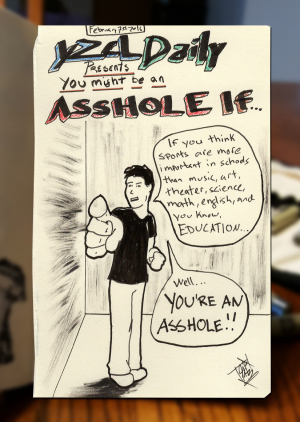 YZCL Daily
Presents
You might be an
ASSHOLE If...
If you think
sports are more
important in schools
than music, art,
theater, science,
math, english, and
you know,
EDUCATION...
Well...
YOU'RE AN
ASSHOLE!!